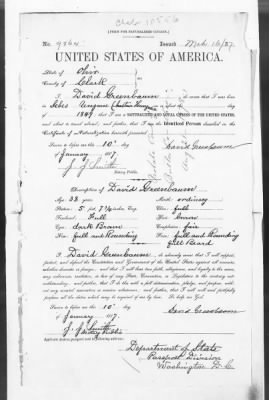 [FORM FOR NATURALIZED CITIZEN.]
No. 9264 Issued Mch 16/87
UNITED STATES OF AMERICA.
State of Ohio
County of Clark
I, David Greenbaum, do swear that I was born
in
day
that I am a NATURALIZED AND LOYAL CITIZEN OF THE UNITED STATES,
and about to travel abroad, and further, that I am the Identical Person described in the
Certificate of Naturalization herewith presented.
Sworn to before me this 10th day
of January 1887.
J. J. Smith
Notary Public.
Description of David Greenbaum
Age: 38 years Mouth: ordinary
Stature: 5 feet inches, Eng. Chin: full
Forehead: Full Hair:
Eyes: dark Brown Complexion: fair
Nose: full and Rounding Face: full and Rounding
full Beard
I, David Greenbaum, do solemnly swear that I will support,
protect, and defend the Constitution and Government of the United States against all enemies,
whether domestic or foreign; and that I will bear true faith, allegiance, and loyalty to the same,
any ordinance, resolution, or law of any State, Convention, or Legislature to the contrary not-
withstanding; and further, that I do this with a full determination, pledge, and purpose, with-
out any mental reservation or evasion whatsoever; and further, that I will well and faithfully
perform all the duties which may be required of me by law. So help me God.
Sworn to before me this 10th day
of January 1887.
J. J. Smith
Notary Public
Applicant desires passport to be sent to following address:
Department of State
Passport Division
Washington D.C.